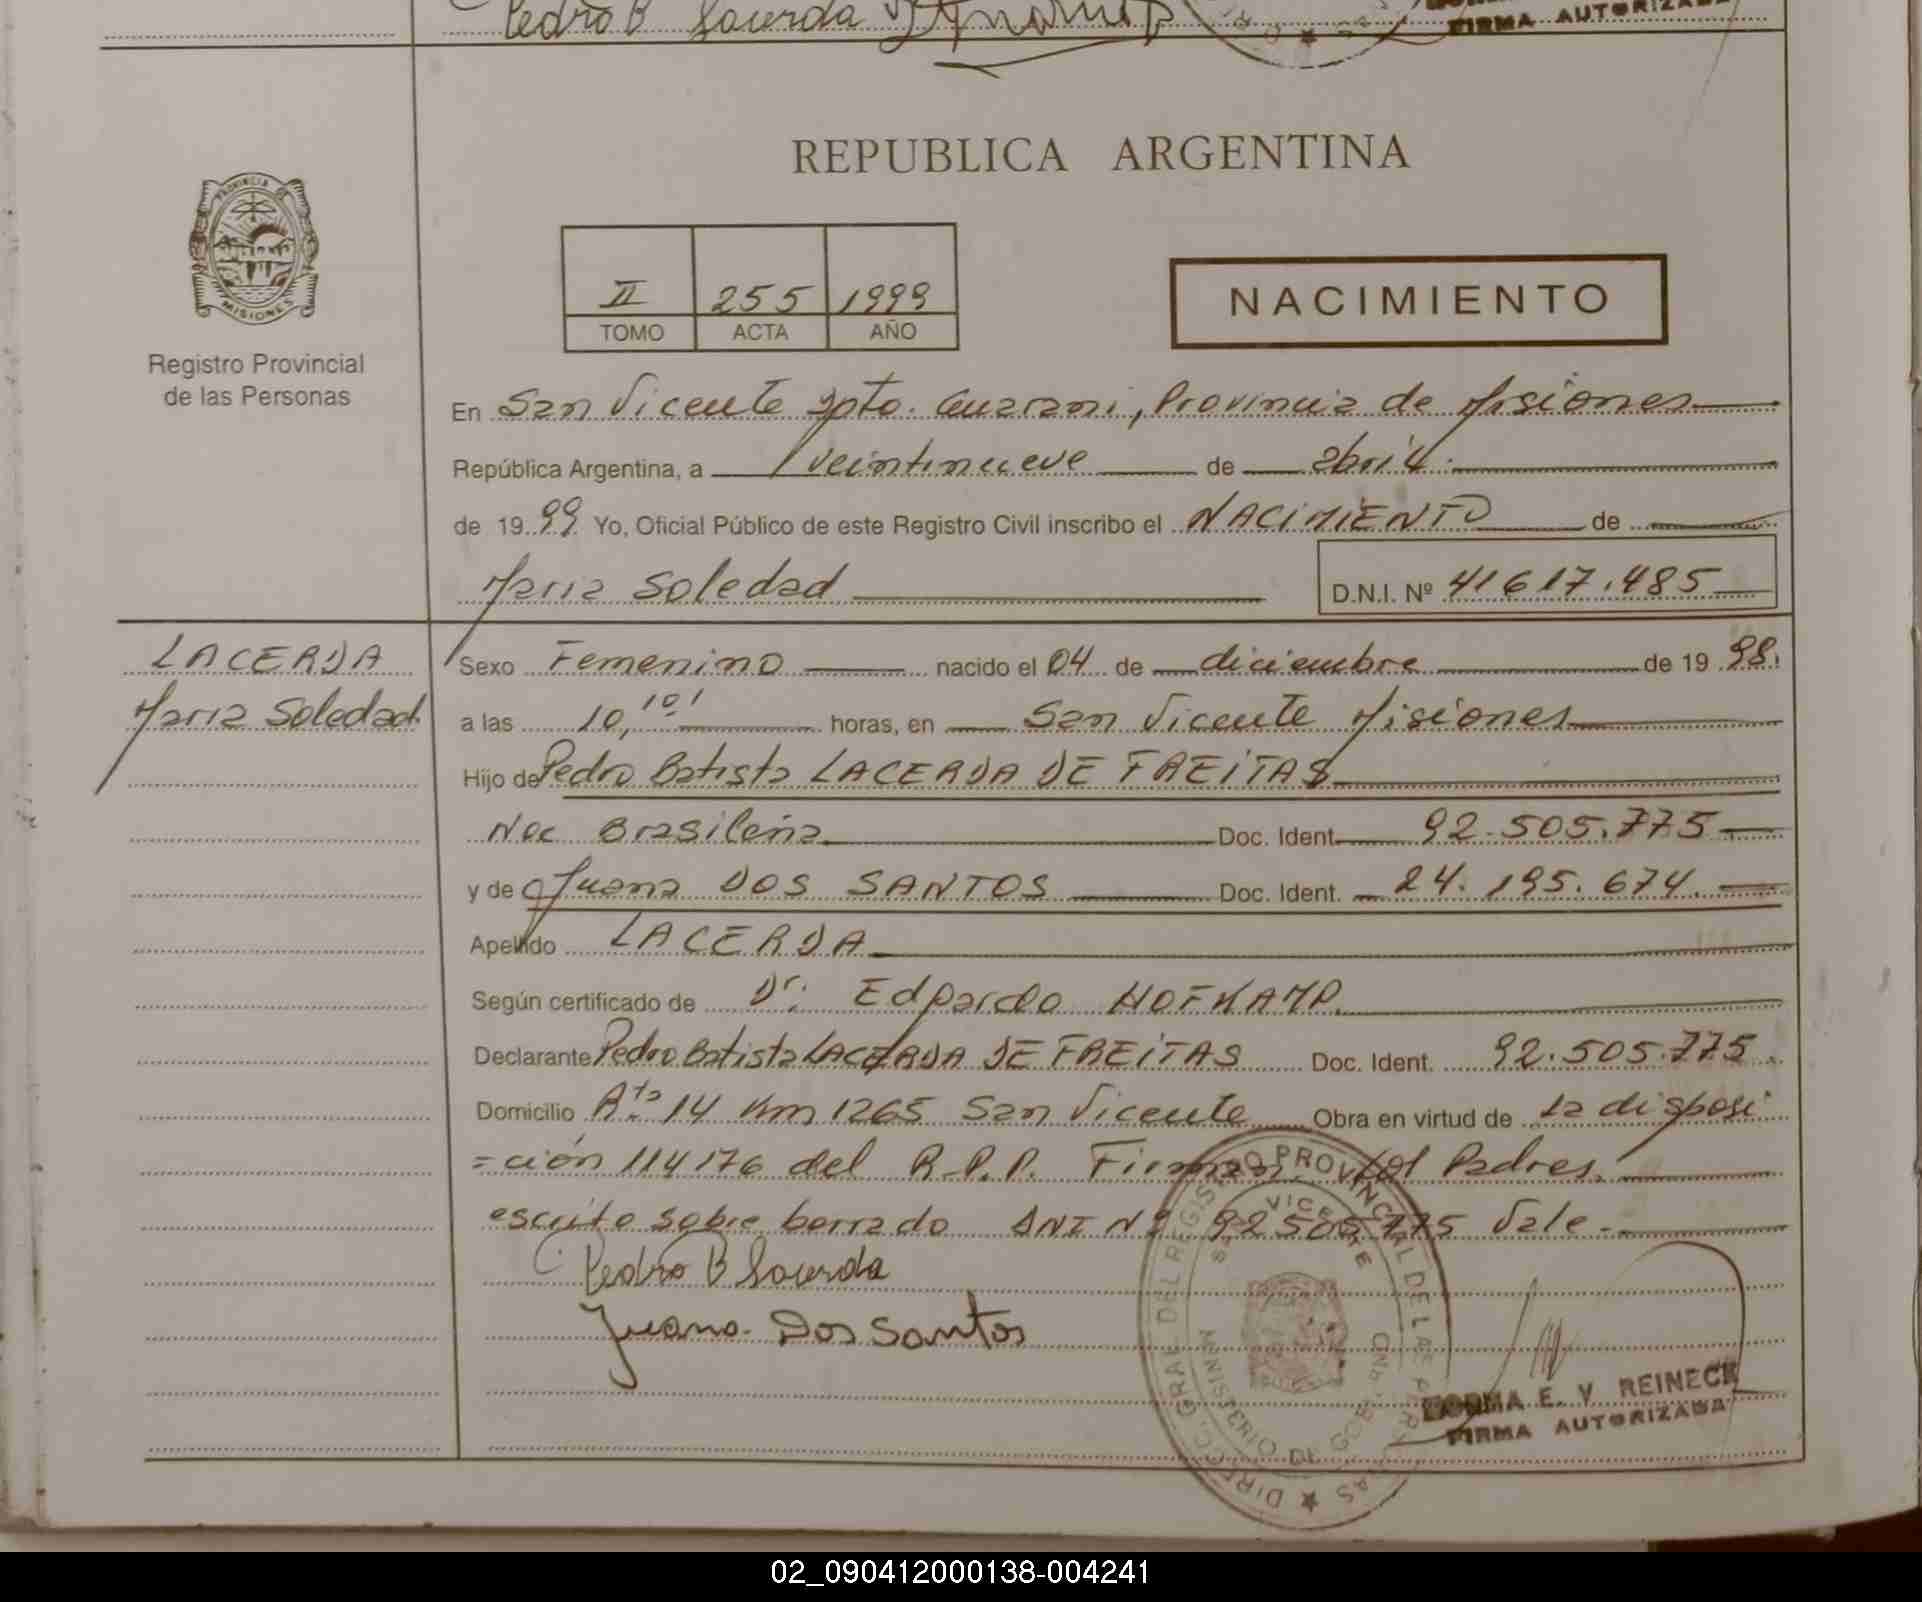 Pedro B Lacerda
FIRMA AUTORIZADA
REPUBLICA ARGENTINA
PROVINCIA DE
MISIONES
Registro Provincial
de las Personas
II 255 1999
TOMO ACTA AÑO
NACIMIENTO
En San Vicente Dpto. Guarani, Provincia de Misiones
República Argentina, a veintinueve de abril
de 1999 Yo, Oficial Público de este Registro Civil inscribo el NACIMIENTO de
Maria Soledad D.N.I. Nº 41617.485
LACERDA
Maria Soledad
Sexo Femenino nacido el 04 de diciembre de 1998
a las 10,10' horas, en San Vicente Misiones
Hijo de Pedro Batista LACERDA DE FREITAS
Nac Brasileña Doc. Ident 92.505.775
y de Juana DOS SANTOS Doc. Ident. 24.195.674.
Apellido LACERDA
Según certificado de Dr. Edgardo HOFKAMP.
Declarante Pedro Batista LACERDA DE FREITAS Doc. Ident. 92.505.775
Domicilio Rta 14 Km 1265 San Vicente Obra en virtud de la disposi
=ción 114176 del R.P.P. Firman los Padres.
escrito sobre borrado DNI Nº 92505775 Vale.-
Pedro B Lacerda
Juana Dos Santos
DIRECC. GRAL DEL REGISTRO PROVINCIAL DE LAS PERSONAS
SAN VICENTE
MINISTERIO DE GOBIERNO
NORMA E. V. REINECK
FIRMA AUTORIZADA
02_090412000138-004241